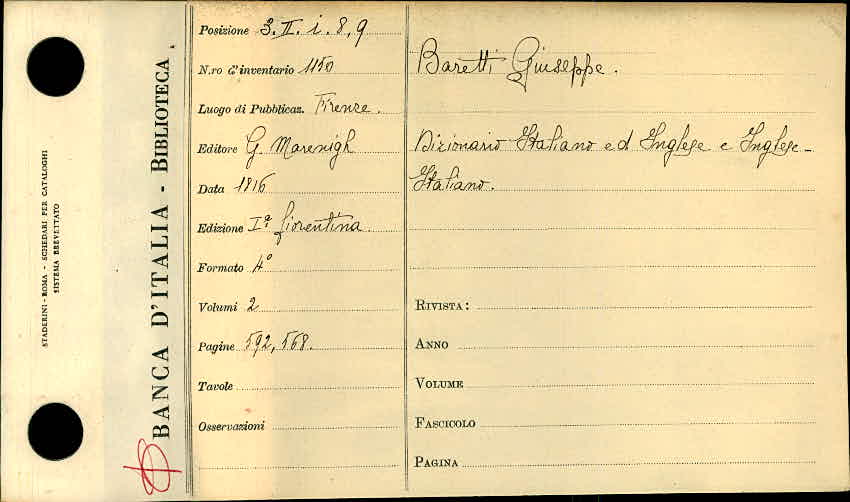 STADERINI - ROMA - SCHEDARI PER CATALOGHI
SISTEMA BREVETTATO
BANCA D'ITALIA - BIBLIOTECA
Posizione 3. II. i. 8, 9
N.ro d'inventario 1150
Luogo di Pubblicaz. Firenze.
Editore G. Marenigh
Data 1816
Edizione Iª fiorentina.
Formato 4°
Volumi 2
Pagine 592, 568.
Tavole
Osservazioni
Baretti Giuseppe.
Dizionario Italiano ed Inglese e Inglese-
Italiano.
RIVISTA:
ANNO
VOLUME
FASCICOLO
PAGINA